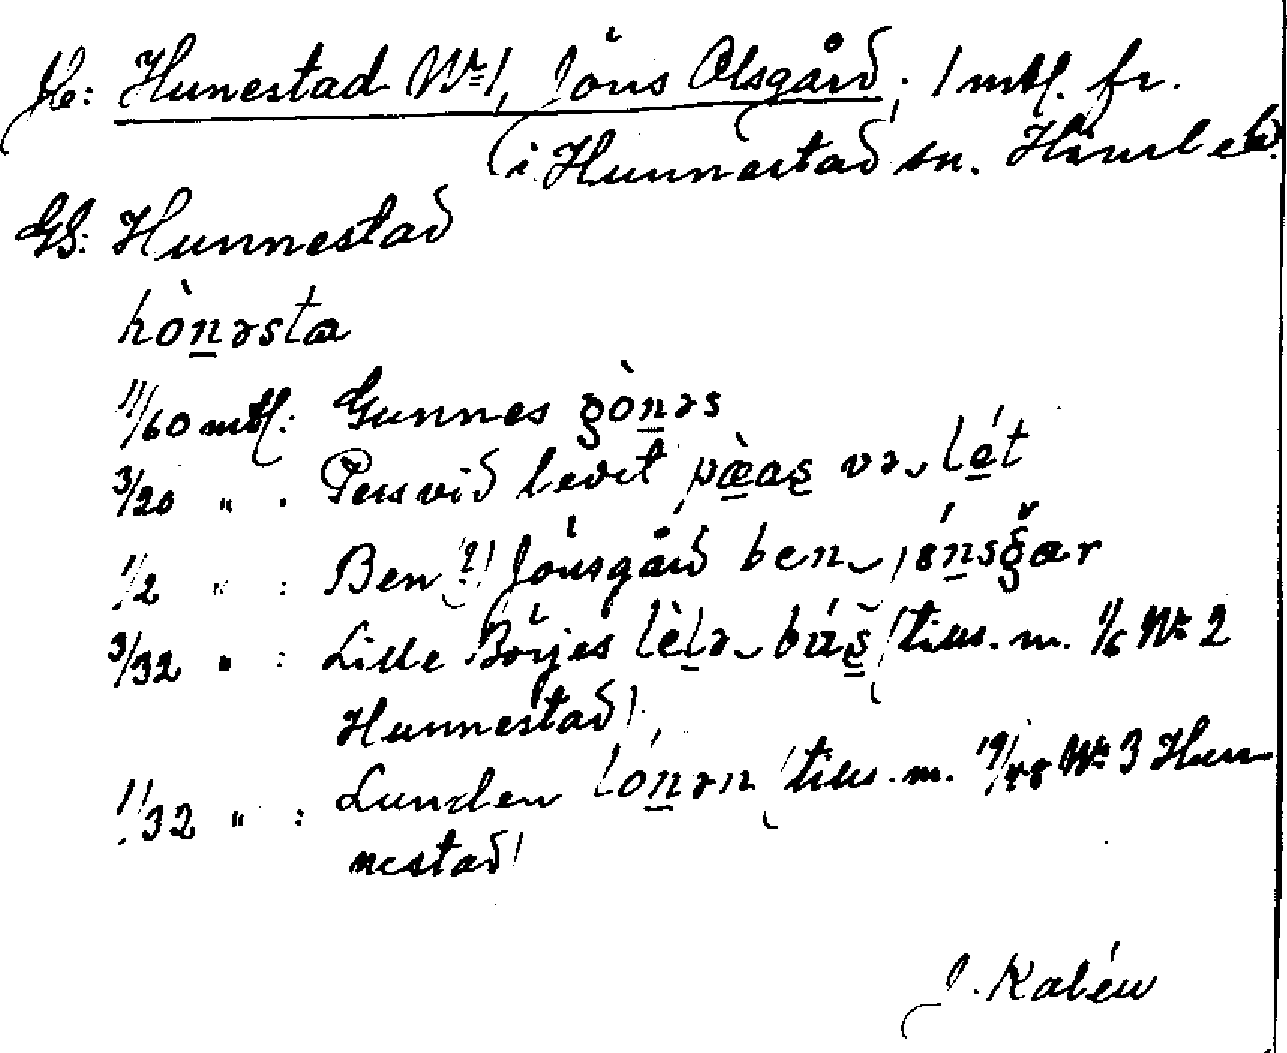 Jb: Hunestad Nr 1, Jöns Olsgård; 1 mtl. fr.
i Hunnestad sn. Himle hd.
GS: Hunnestad
hò̱nəsta
11/60 mtl: Gunnes gò̱nəs
3/20 " : Persvid ledet
1/2 " : Ben(?) Jönsgård
3/32 " : Lille Börjes (tills. m. 1/6 Nr 2
Hunnestad)
11/32 " : Lunden ló̱nən (tills. m. Nr 3 Hun-
nestad)
J. Kalén